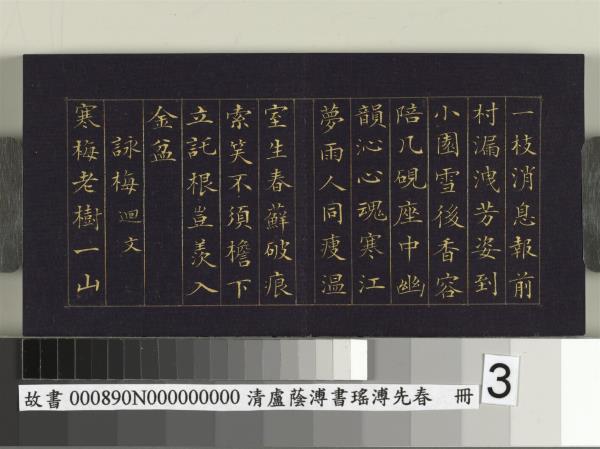 一枝消息報前
村漏洩芳姿到
小園雪後香容
陪几硯座中幽
韻沁心魂寒江
夢雨人同瘦溫
室生春蘚破痕
索笑不須檐下
立託根豈羨入
金盆
詠梅迴文
寒梅老樹一山
故書 000890N000000000 清盧蔭溥書瑤溥先春 冊
3